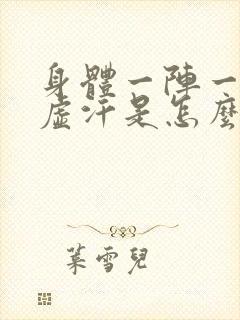 身體一陣一
虛汗是怎麼
葉雪兒